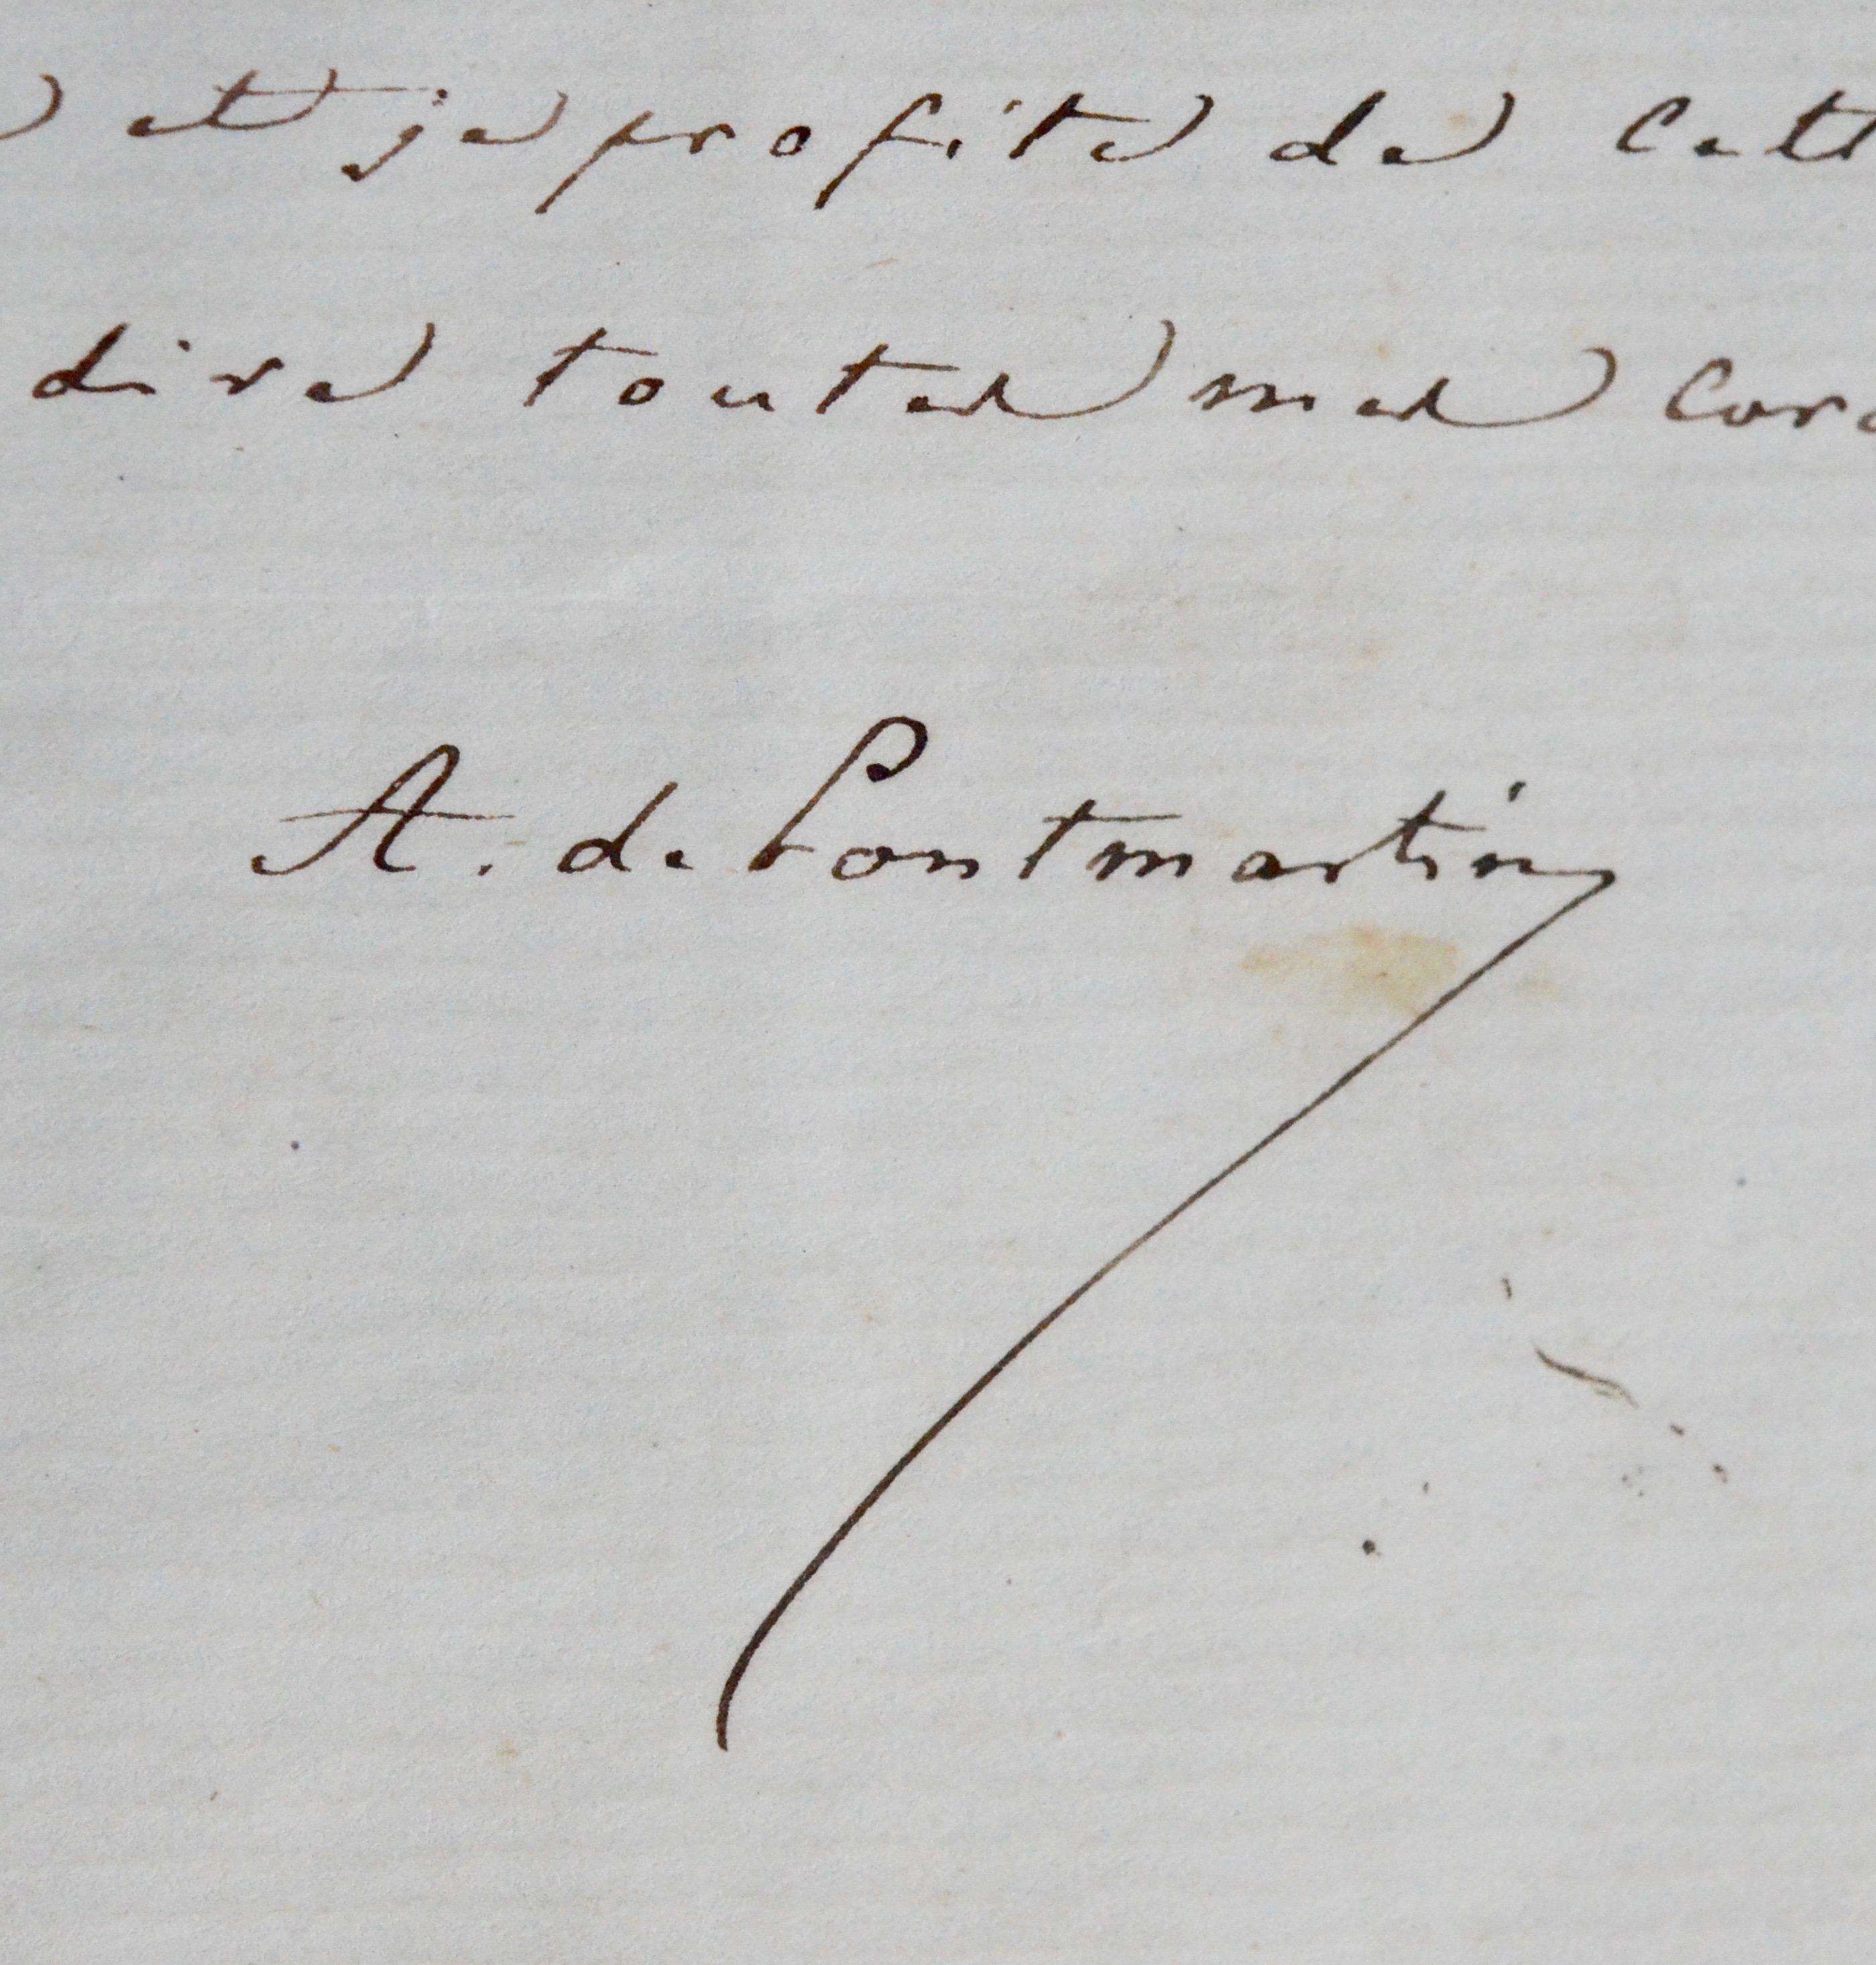 et je profite de cett
dire toutes mes cord
A. de Pontmartin